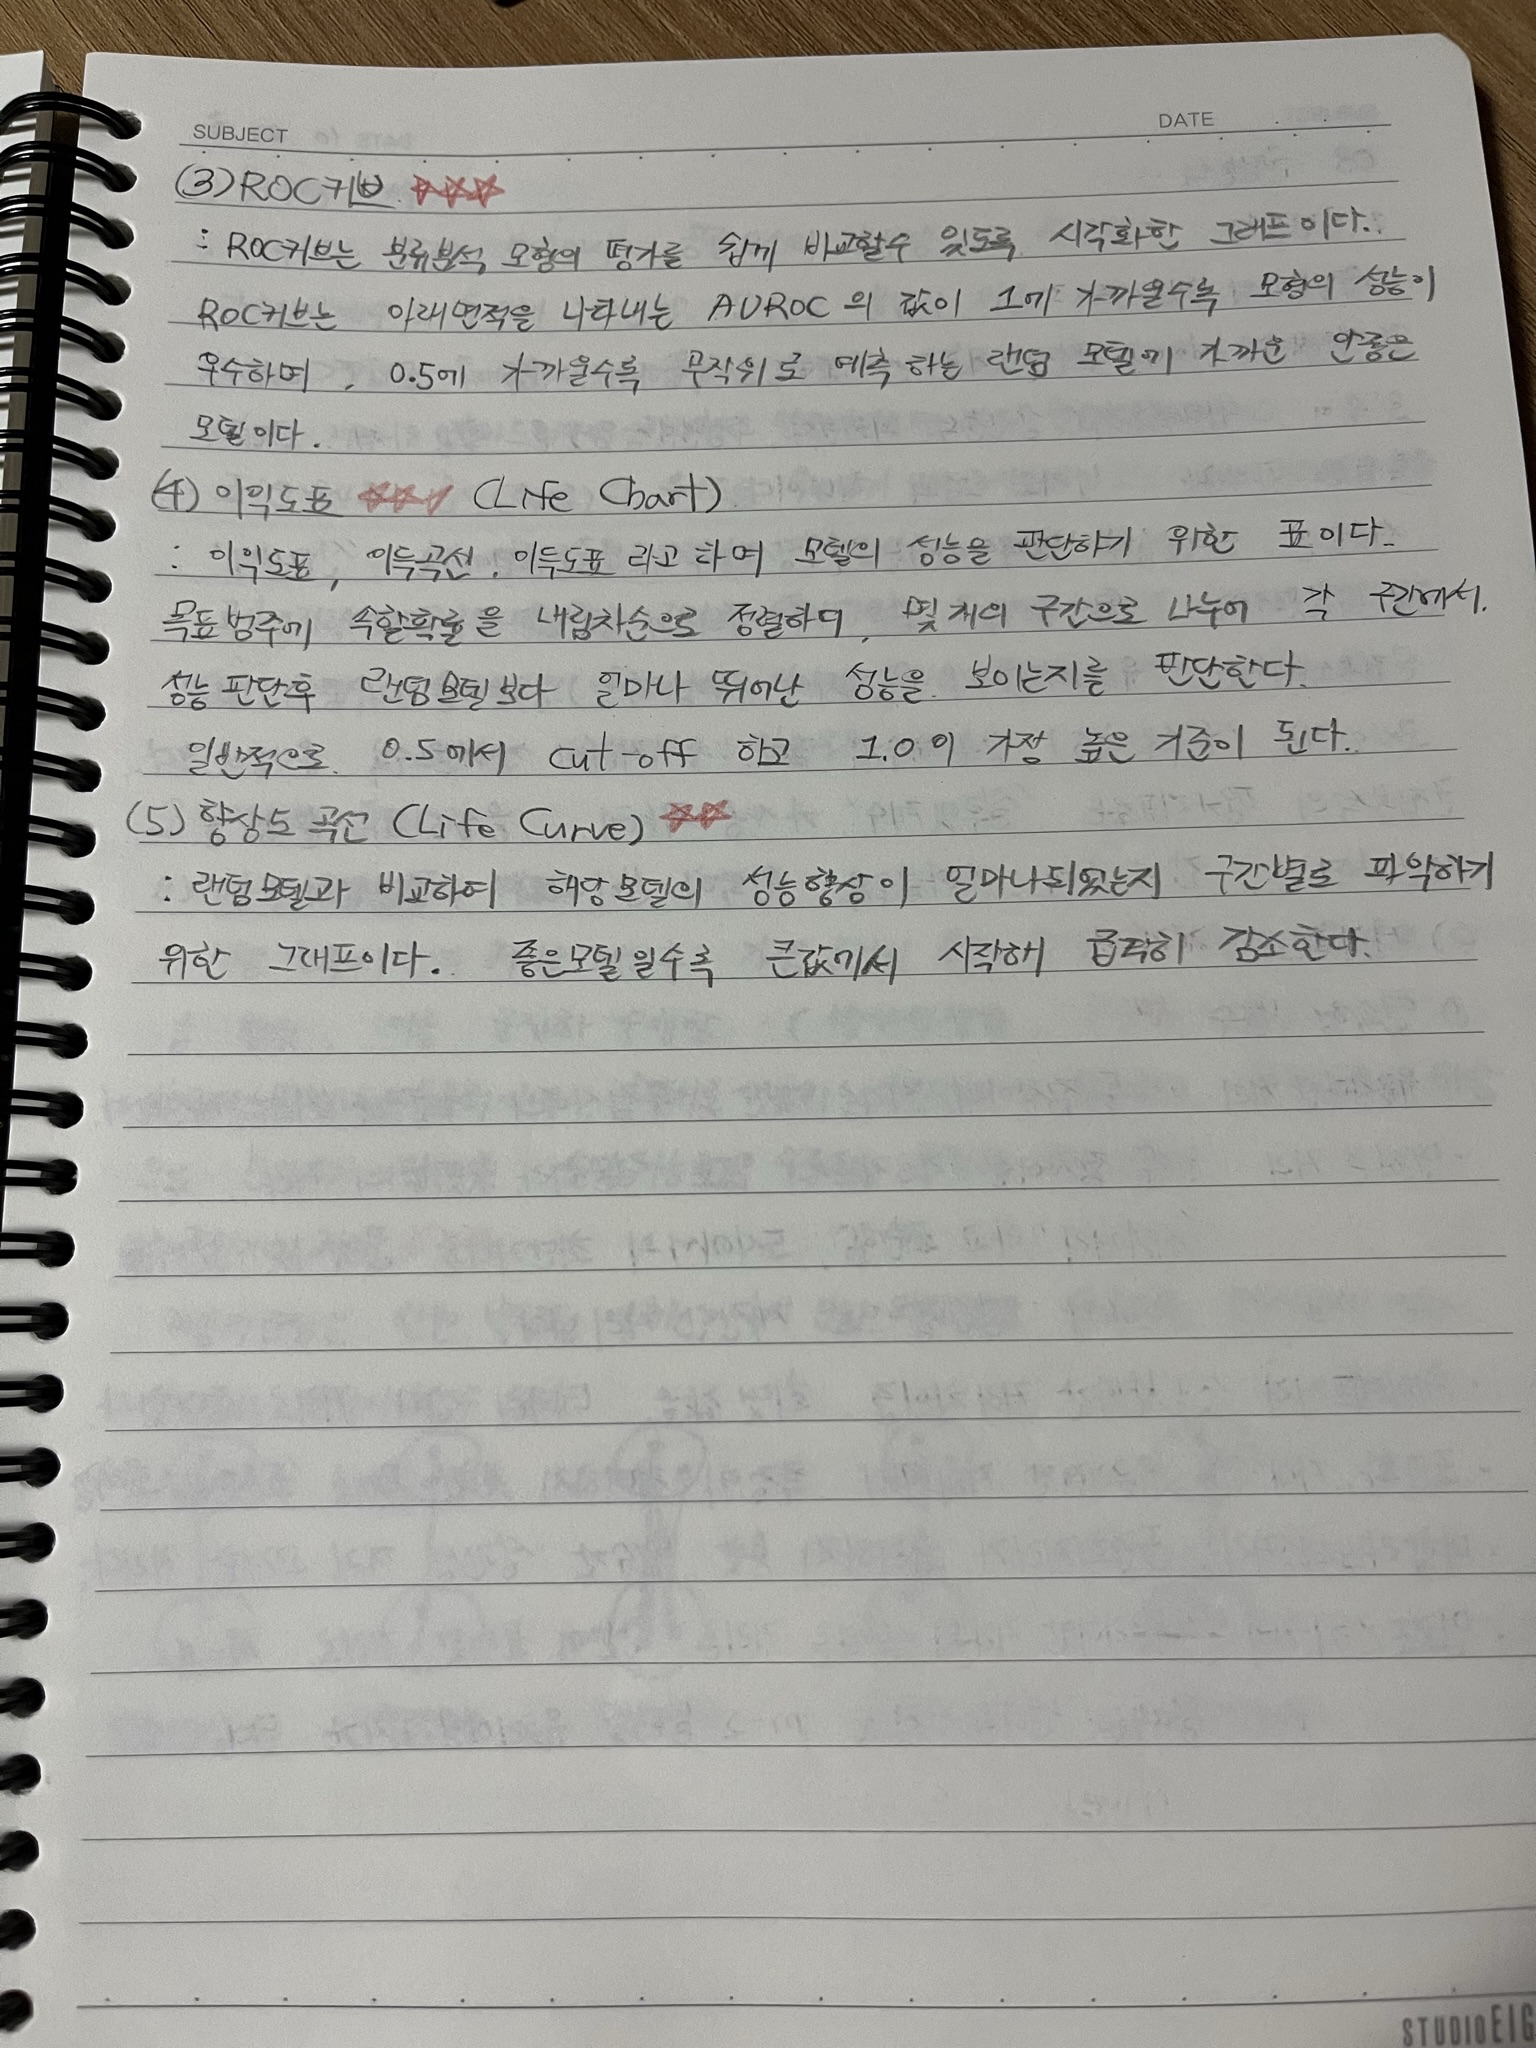 SUBJECT
DATE
(3) ROC커브 ☆☆☆
: ROC커브는 분류분석 모형의 평가를 쉽게 비교할수 있도록 시각화한 그래프이다.
ROC커브는 아래면적을 나타내는 AUROC의 값이 1에 가까울수록 모형의 성능이
우수하며, 0.5에 가까울수록 무작위로 예측하는 랜덤 모델에 가까운 안좋은
모델이다.
(4) 이익도표 ☆☆☆ (Life Chart)
: 이익도표, 이득곡선, 이득도표 라고 하며 모델의 성능을 판단하기 위한 표이다.
목표범주에 속할확률을 내림차순으로 정렬하여, 몇개의 구간으로 나누어 각 구간에서.
성능 판단후 랜덤모델보다 얼마나 뛰어난 성능을 보이는지를 판단한다.
일반적으로 0.5에서 cut-off 하고 1.0이 가장 높은 기준이 된다.
(5) 향상도 곡선 (Life Curve) ☆☆
: 랜덤모델과 비교하여 해당모델의 성능향상이 얼마나되었는지 구간별로 파악하기
위한 그래프이다. 좋은모델일수록 큰값에서 시작해 급격히 감소한다.
STUDIOEIG